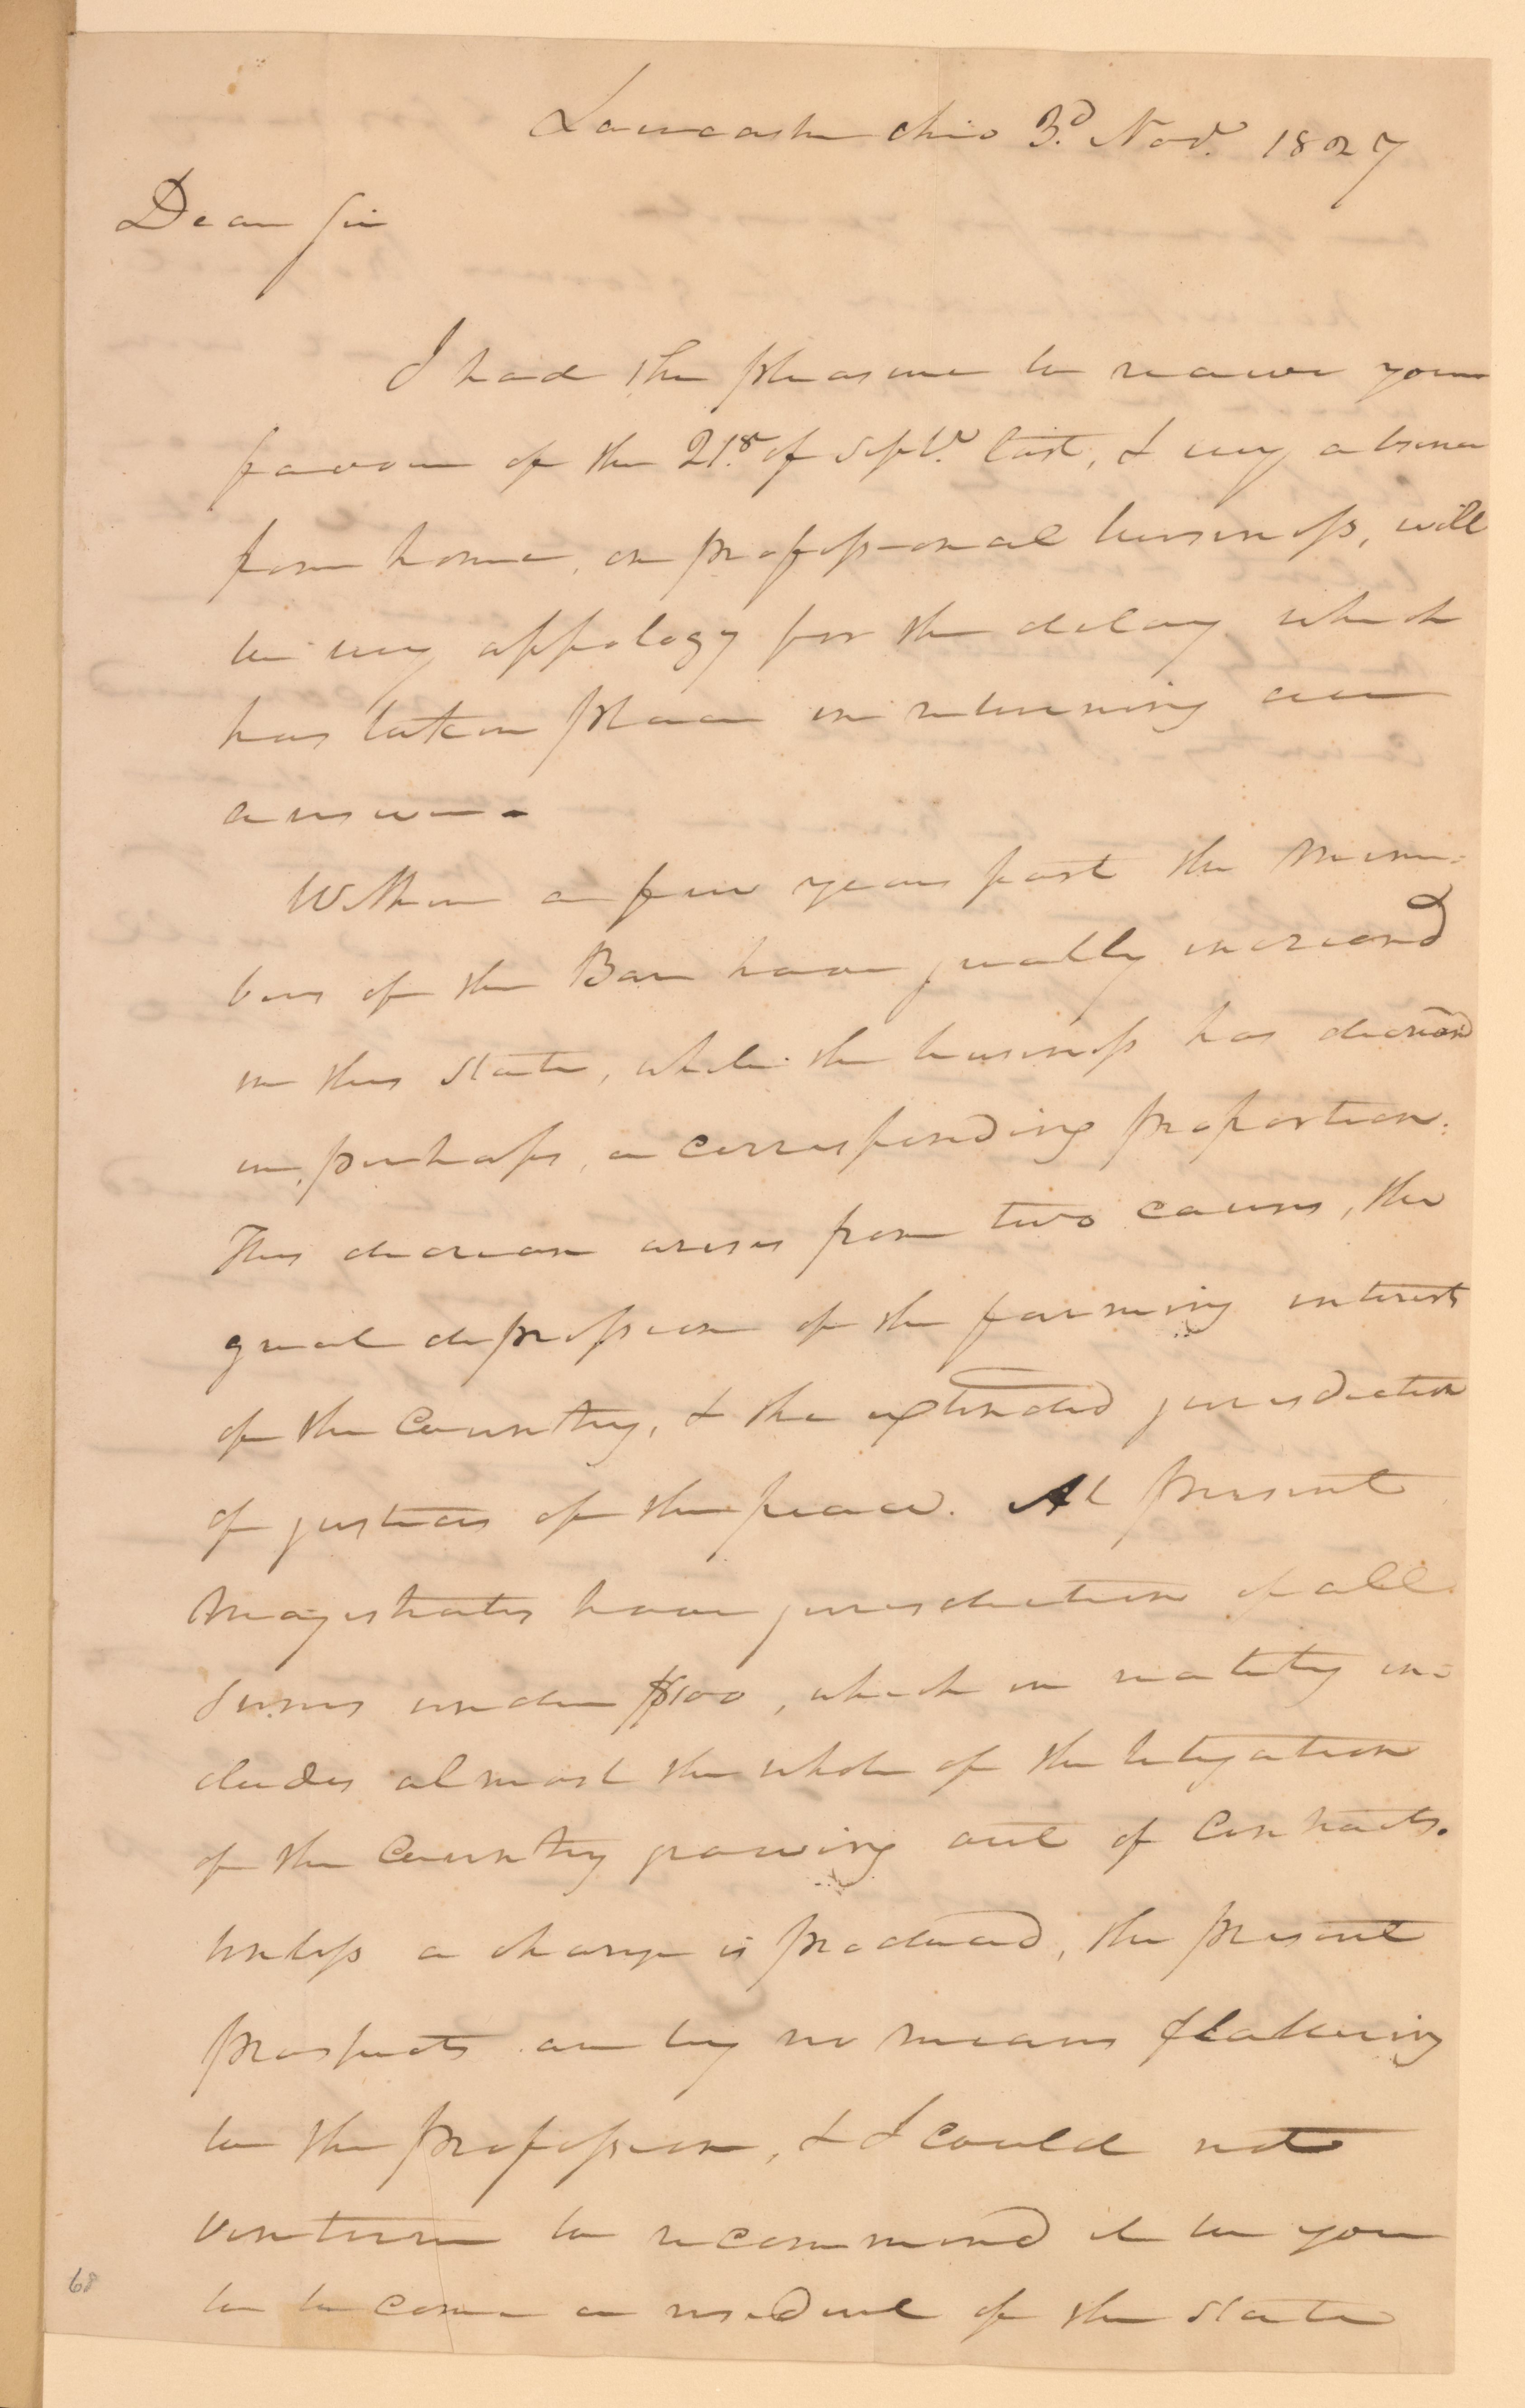 Lancaster Ohio 3d. Novr. 1827
Dear Sir
I had the pleasure to receive your
favour of the 21st. of Septr. last, & my absence
from home, on professional business, will
be my appology for the delay which
has taken place in returning an
answer.
Within a few years past the mem=
bers of the Bar have greatly increased
in this State, while the business has decreased
in, perhaps, a corresponding proportion.
This decrease arises from two causes, the
great depression of the farming interests
of the Country, & the extended jurisdiction
of justices of the peace. At present
Magistrates have jurisdiction of all
sums under $100, which in reality in=
cludes almost the whole of the litigation
of the Country growing out of Contracts.
Unless a change is produced, the present
prospects are by no means flattering
to the profession, & I could not
venture to recommend it to you
to become a resident of the State
68